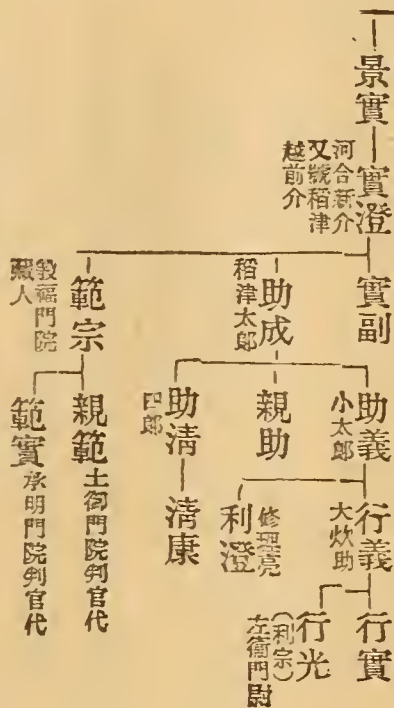 景實
實澄
河合新介
又號稻津
越前介
實副
助成
稻津太郎
範宗
殷福門院
藏人
助義
小太郎
親助
助清
四郎
親範 土御門院判官代
範實 承明門院判官代
行義
大炊助
利澄
修理亮
清康
行實
行光
(利宗)
左衞門尉